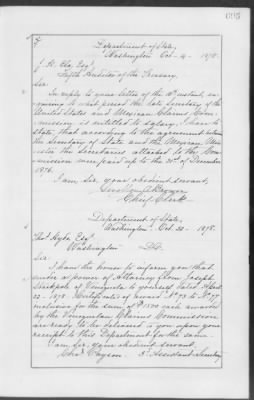 Department of State,
Washington Oct 4 1878.
J. H. Ela, Esqr
Fifth Auditor of the Treasury.
Sir:
In reply to your letter of the 10th instant, in-
quiring to what period the late Secretary of the
United States and Mexican Claims Com-
mission is entitled to salary, I have to
state, that according to the agreement between
the Secretary of State and the Mexican Min-
ister the Secretaries attached to the Com-
mission were paid up to the 31st of December
1876.
I am Sir, your obedient servant,
Chief Clerk
Department of State,
Washington Oct. 22 - 1878.
Esq
Washington
Sir:
I have the honor to inform you that
under a power of Attorney from Joseph
Stackpole of Venezuela to yourself dated April
22 - 1878. Certificates of award No 73 to No 77
inclusive for the sum of $1500 each issued
by the Venezuelan Claims Commission
are ready to be delivered to you upon your
receipt to this Department for the same.
I am sir, your obedient servant,
Chas Payson
3d Assistant Secretary